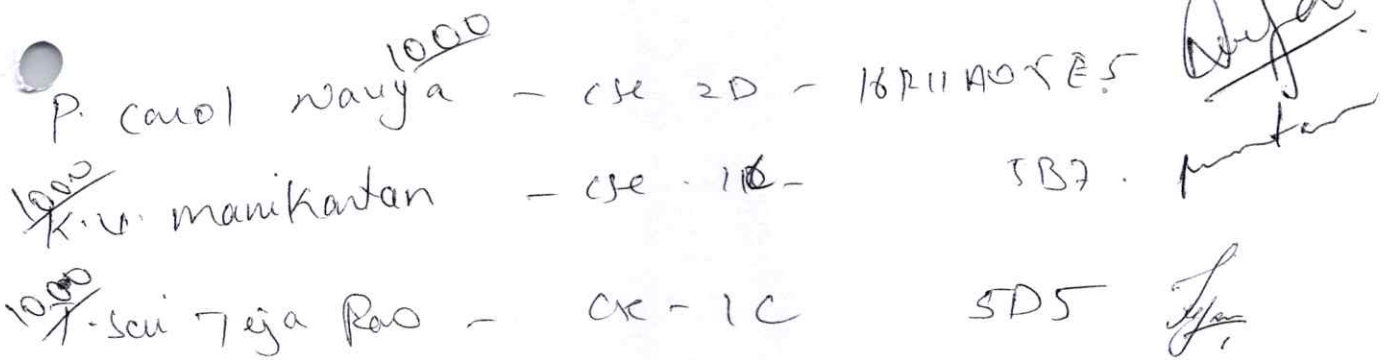 1000
P. Carol Navya - CSE 2D - 16R11A05E5
1000
K.V. Manikantan - CSE - 1C - 5B7.
1000
T. Sai Teja Rao - CSE - 1C 5D5